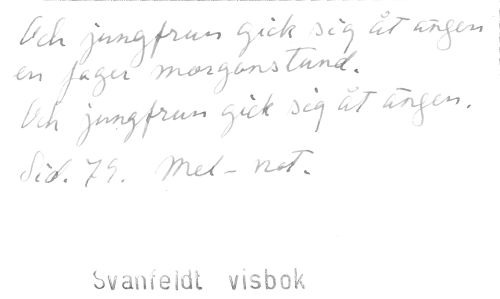 Och jungfrun gick sig åt ängen
en fager morgonstund.
Och jungfrun gick sig åt ängen.
Sid. 79. Mel-not.
Svanfeldt visbok